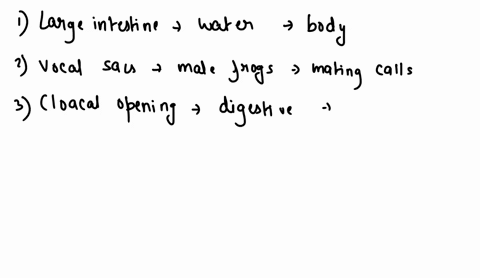 1) Large intestine → water → body
2) Vocal sacs → male frogs → mating calls
3) Cloacal opening → digestive →